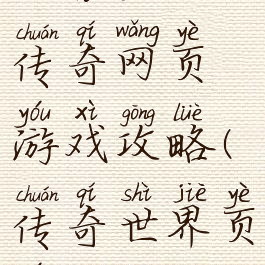 chuán qí wǎng yè
传奇网页
yóu xì gōng lüè
游戏攻略(
chuán qí shì jiè yè
传奇世界页